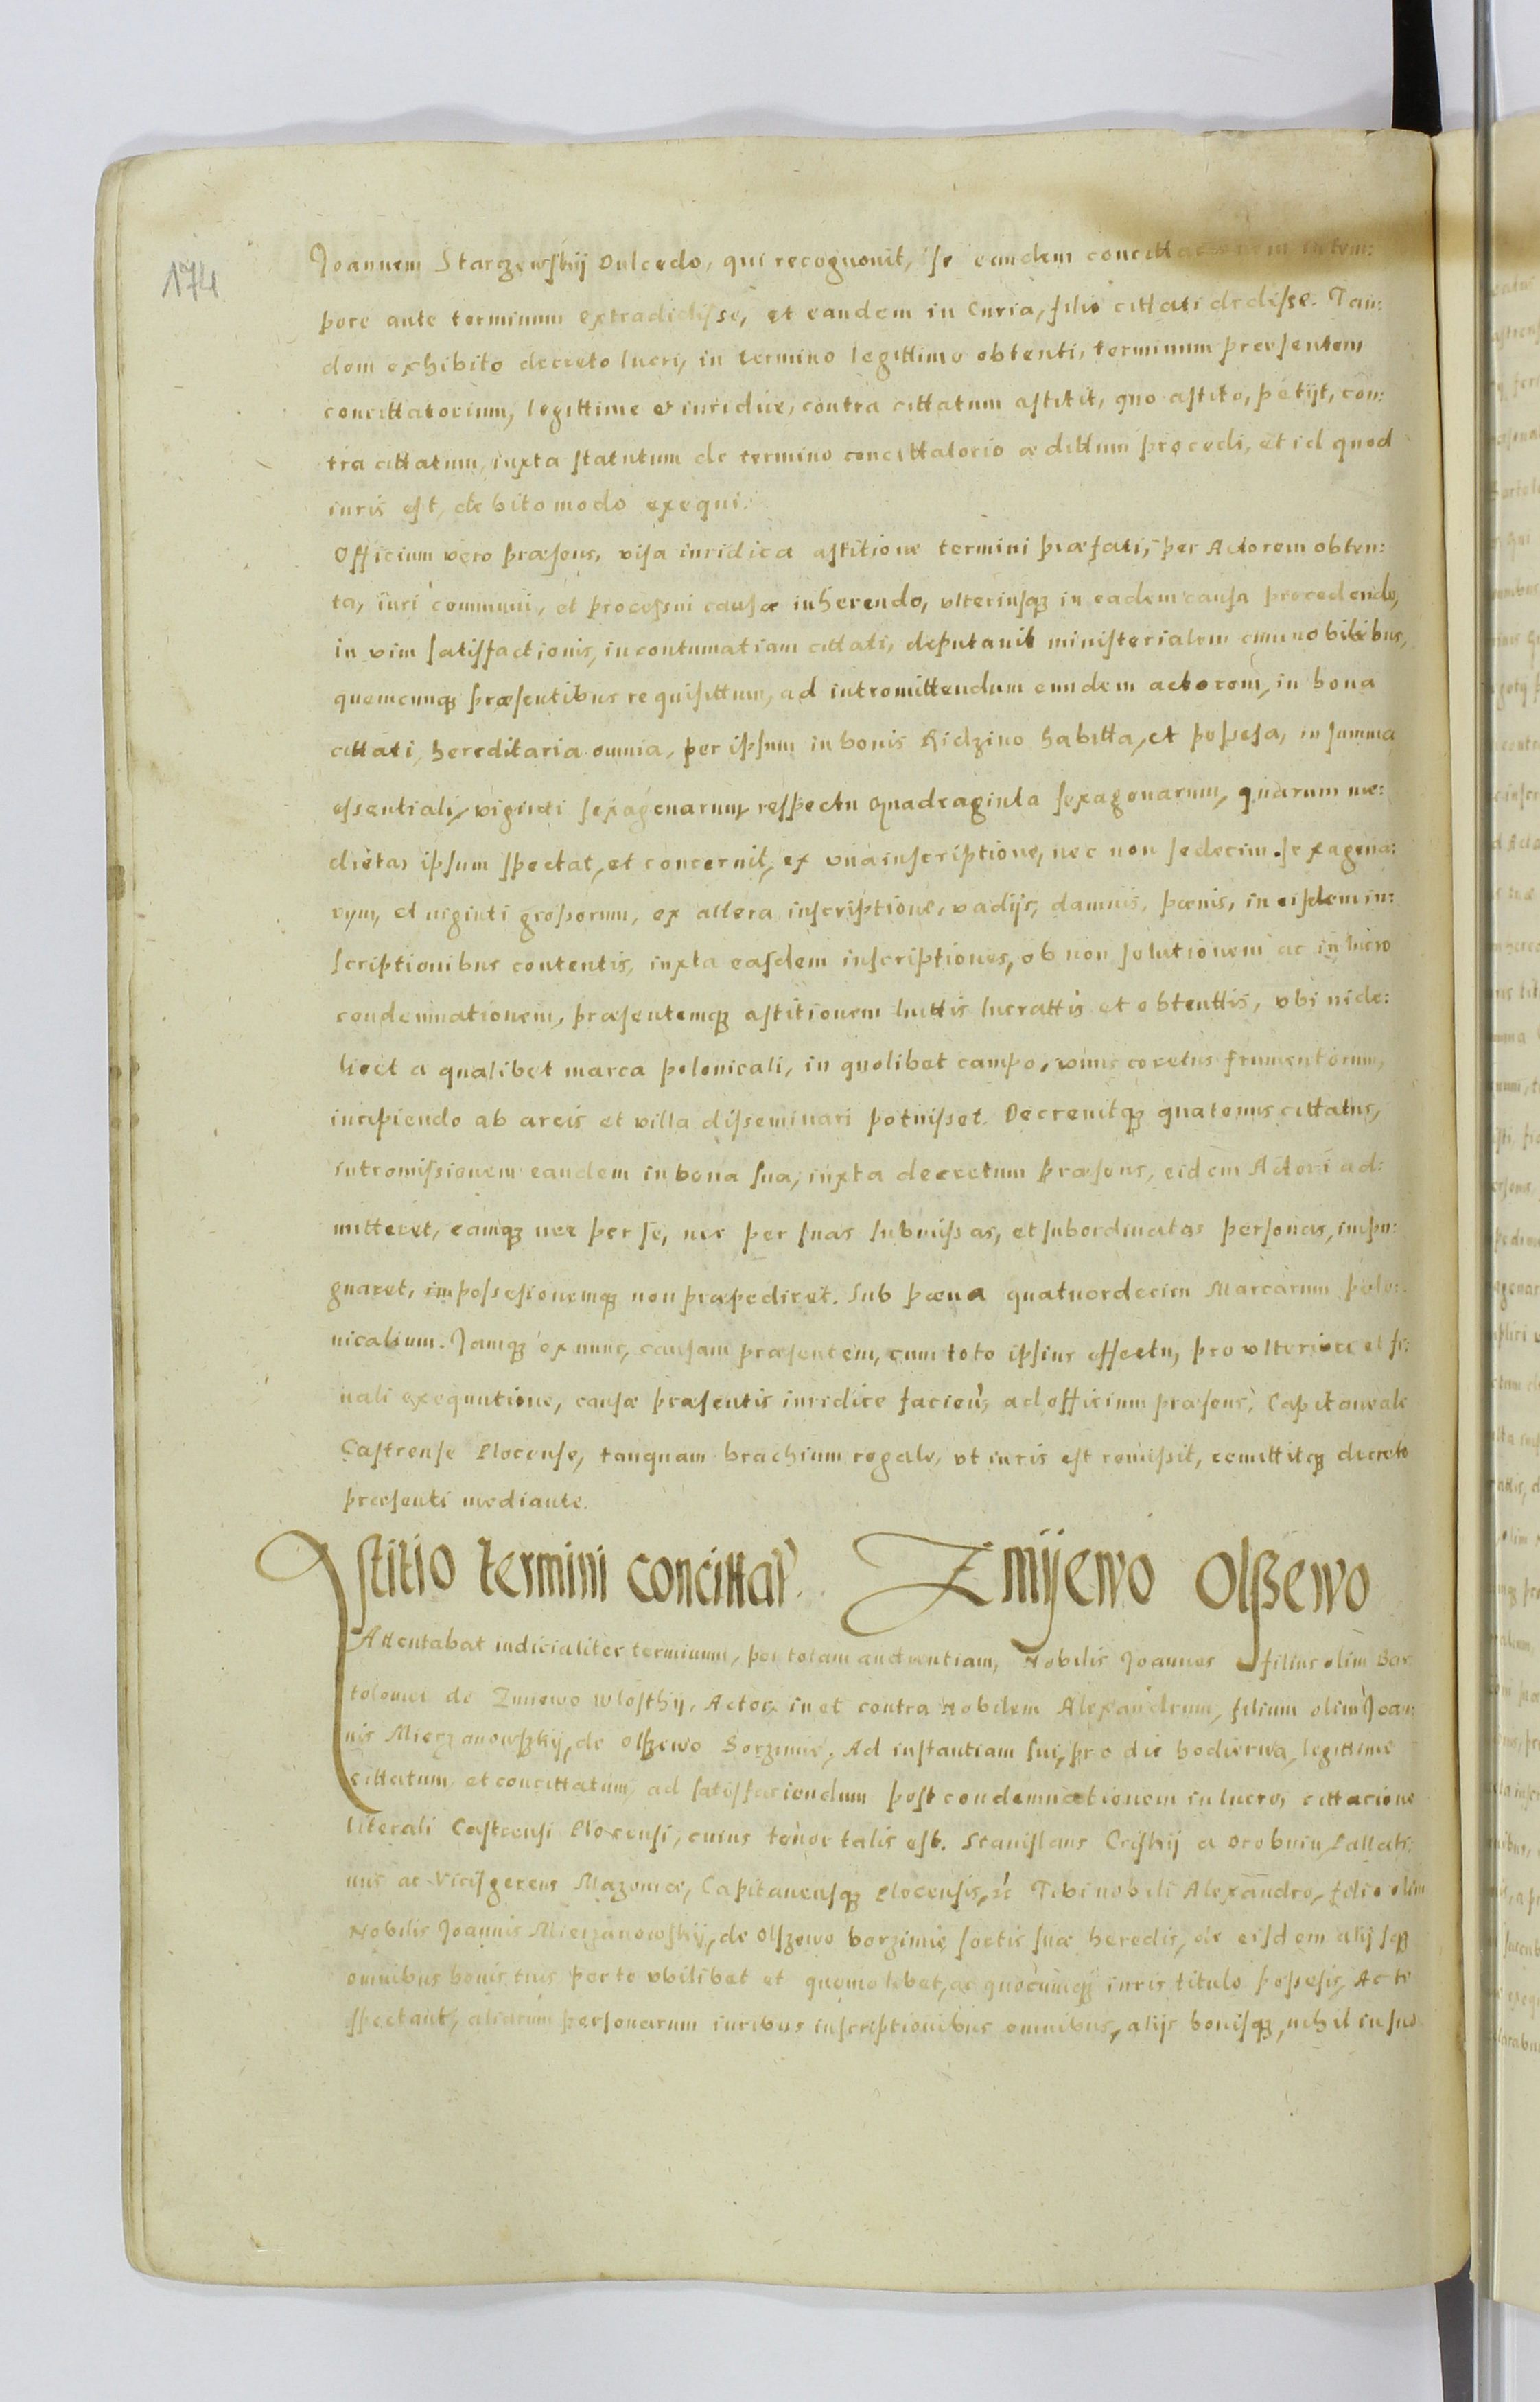 174
Joannem Starczewskij Dulcedo, qui recognouit, se eandem concittationem intem:
pore ante terminum extradidisse, et eandem in Curia, filio cittati dedisse. Tan:
dem exhibito decreto lucri, in termino legittimo obtenti, terminum prersentem
concittatorium, legittime et iuridice, contra cittatum astitit, quo astito, petijt, con:
tra cittatum, iuxta statutum de termino concittatorio æditum procedi, et id quod
iuris est, debito modo exequi.
Officium vero præsens, visa iuridica astitione termini præfati, per Actorem obten:
ta, iuri communi, et processui causæ inherendo, vlteriusq; in eadem causa procedendo,
in vim satisfactionis, in contumatiam cittati, deputauit ministerialem cum nobilibus,
quemcunq; præsentibus requisittum, ad intromittendum eundem actorem, in bona
cittati, hereditaria omnia, per ipsum in bonis Ridzino habitta, et possesa, in summa
essentiali, viginti sexagenarum, respectu Quadraginta sexagenarum, quarum me:
dietas ipsum spectat, et concernit, ex vna inscriptione, nec non sedecim sexagena:
rum, et uiginti grossorum, ex altera inscriptione, vadijs, damnis, pænis, in eisdem in:
scriptionibus contentis, iuxta easdem inscriptiones, ob non solutionem ac in lucro
condemnationem, præsentemq; astitionem luittis lucrattis et obtenttis, vbi uide:
licet a qualibet marca polonicali, in quolibet campo, vnus coretus frumentorum,
incipiendo ab areis et villa disseminari potuisset. Decreuitq; quatenus cittatus,
intromissionem eandem in bona sua, iuxta decretum præsens, eidem Actori ad:
mitteret, eamq; nec per se, nec per suas submissas, et subordinatas personas, impu:
gnaret, impossesionemq; non præpediret. Sub pæna quatuordecim Marcarum polo:
nicalium. Jamq; ex nunc, causam præsentem, cum toto ipsius effectu, pro vlteriore et fi:
nali exequutione, causæ præsentis iuridice facien', ad officium præsens, Capitaneale
Castrense Plocense, tanquam brachium regale, vt iuris est remissit, remittitq; decreto
præsenti mediante.
Astitio termini concittat' Zmijewo Olszewo
Attentabat iudicialiter terminum, per totam audientiam, Nobilis Joannes filius olim Bar
tolomei de Zmiewo Wlosthij, Actor, in et contra Nobilem Alexandrum, filium olim Joan
nis Mierzanowszkij, de Olszewo Borzimie, Ad instantiam sui, pro die hodierna, legittime
cittatum et concittatum, ad satisfaciendum post condemnationem in lucro, cittacione
literali Castrensi Plocensi, cuius tenor talis est. Stanislaus Criskij a Drobnin, Pallati:
nus ac Vicisgerens Mazouiæ, Capitaneusq; Plocensis, &c Tibi nobili Alexandro, filio olim
Nobilis Joannis Mierzanowskij, de Olszewo borzimie sortis suæ heredis, de eisdem alijsq;
omnibus bonis tuis per te vbilibet et quomolibet, ac quocumq; iuris titulo possesis, Ac te
spectant, aliarum personarum iuribus inscriptionibus omnibus, alijs bonisq; nihil in suo